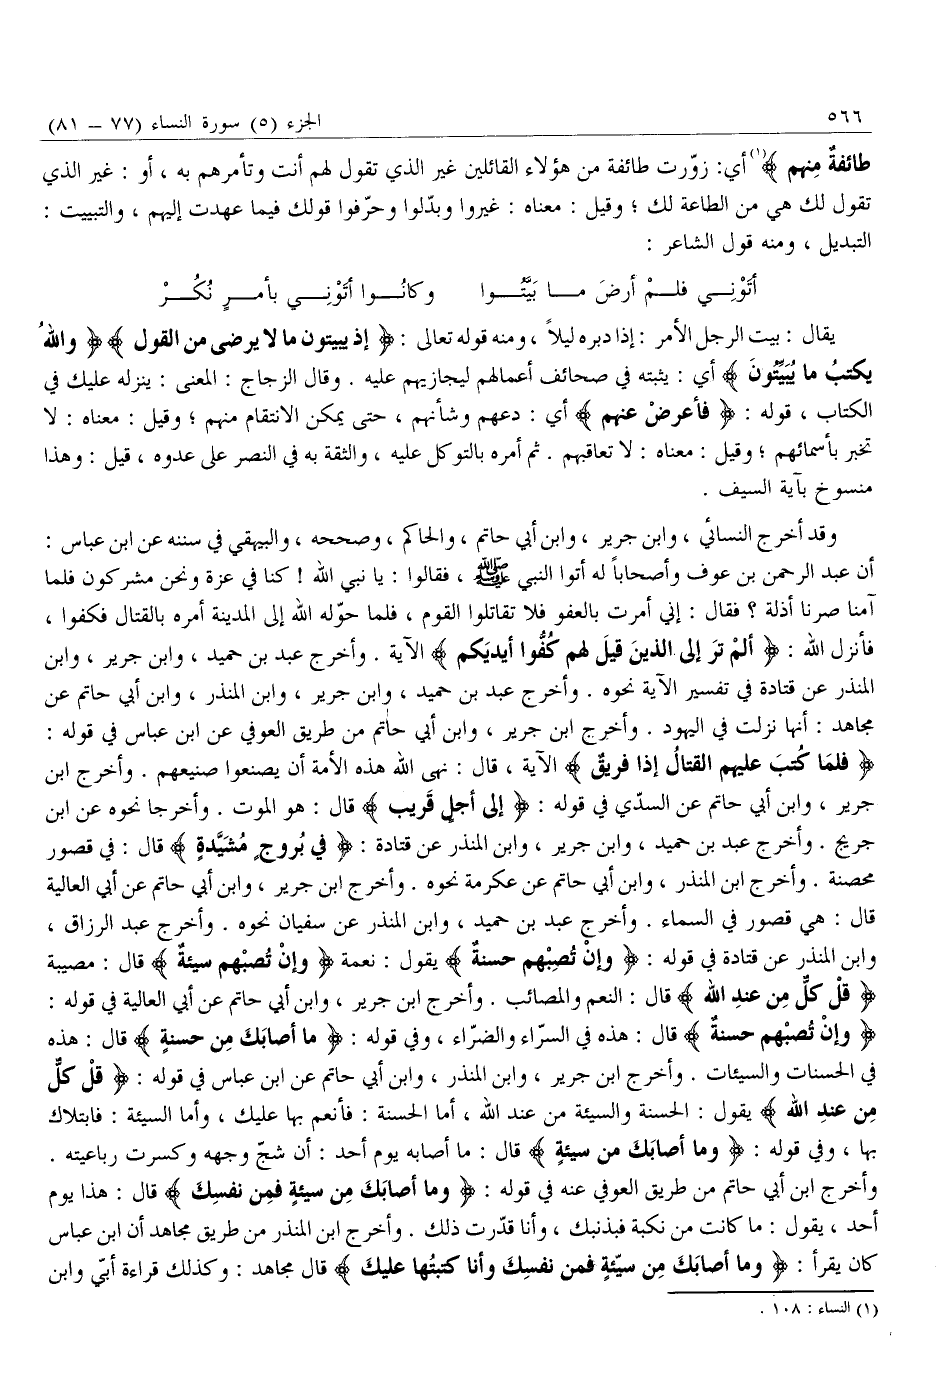 ٥٦٦
الجزء (٥) سورة النساء (٧٧ – ٨١)
طائفةٌ مِنهم ﴾(١) أي: زوّرت طائفة من هؤلاء القائلين غير الذي تقول لهم أنت وتأمرهم به ، أو : غير الذي
تقول لك هي من الطاعة لك ؛ وقيل : معناه : غيروا وبدّلوا وحرّفوا قولك فيما عهدت إليهم ، والتبييت :
التبديل ، ومنه قول الشاعر :
أتَوْنِي فلمْ أرضَ ما بَيَّتُوا وكانُوا أتَوْنِي بأمرٍ نُكُرْ
يقال : بيت الرجل الأمر : إذا دبره ليلاً ، ومنه قوله تعالى : ﴿ إذ يبيتون ما لا يرضى من القول ﴾ ﴿ واللهُ
يكتبُ ما يُبَيِّتُونَ ﴾ أي : يثبته في صحائف أعمالهم ليجازيهم عليه . وقال الزجاج : المعنى : ينزله عليك في
الكتاب ، قوله : ﴿ فأعرضْ عنهم ﴾ أي : دعهم وشأنهم ، حتى يمكن الانتقام منهم ؛ وقيل : معناه : لا
تخبر بأسمائهم ؛ وقيل : معناه : لا تعاقبهم . ثم أمره بالتوكل عليه ، والثقة به في النصر على عدوه ، قيل : وهذا
منسوخ بآية السيف .
وقد أخرج النسائي ، وابن جرير ، وابن أبي حاتم ، والحاكم ، وصححه ، والبيهقي في سننه عن ابن عباس :
أن عبد الرحمن بن عوف وأصحاباً له أتوا النبي ﷺ ، فقالوا : يا نبي الله ! كنا في عزة ونحن مشركون فلما
آمنا صرنا أذلة ؟ فقال : إني أمرت بالعفو فلا تقاتلوا القوم ، فلما حوّله الله إلى المدينة أمره بالقتال فكفوا ،
فأنزل الله : ﴿ ألمْ ترَ إلى الذينَ قيلَ لهم كُفُّوا أيديَكم ﴾ الآية . وأخرج عبد بن حميد ، وابن جرير ، وابن
المنذر عن قتادة في تفسير الآية نحوه . وأخرج عبد بن حميد ، وابن جرير ، وابن المنذر ، وابن أبي حاتم عن
مجاهد : أنها نزلت في اليهود . وأخرج ابن جرير ، وابن أبي حاتم من طريق العوفي عن ابن عباس في قوله :
﴿ فلمّا كُتبَ عليهم القتالُ إذا فريقٌ ﴾ الآية ، قال : نهى الله هذه الأمة أن يصنعوا صنيعهم . وأخرج ابن
جرير ، وابن أبي حاتم عن السدّي في قوله : ﴿ إلى أجلٍ قَريب ﴾ قال : هو الموت . وأخرجا نحوه عن ابن
جريج . وأخرج عبد بن حميد ، وابن جرير ، وابن المنذر عن قتادة : ﴿ في بُروجٍ مُشَيَّدةٍ ﴾ قال : في قصور
محصنة . وأخرج ابن المنذر ، وابن أبي حاتم عن عكرمة نحوه . وأخرج ابن جرير ، وابن أبي حاتم عن أبي العالية
قال : هي قصور في السماء . وأخرج عبد بن حميد ، وابن المنذر عن سفيان نحوه . وأخرج عبد الرزاق ،
وابن المنذر عن قتادة في قوله : ﴿ وإنْ تُصِبْهم حسنةٌ ﴾ يقول : نعمة ﴿ وإنْ تُصبْهم سيئةٌ ﴾ قال : مصيبة
﴿ قلْ كلٌّ مِن عندِ الله ﴾ قال : النعم والمصائب . وأخرج ابن جرير ، وابن أبي حاتم عن أبي العالية في قوله :
﴿ وإنْ تُصبْهم حسنةٌ ﴾ قال : هذه في السرّاء والضرّاء ، وفي قوله : ﴿ ما أصابَكَ مِن حسنةٍ ﴾ قال : هذه
في الحسنات والسيئات . وأخرج ابن جرير ، وابن المنذر ، وابن أبي حاتم عن ابن عباس في قوله : ﴿ قلْ كلٌّ
مِن عندِ الله ﴾ يقول : الحسنة والسيئة من عند الله ، أما الحسنة : فأنعم بها عليك ، وأما السيئة : فابتلاك
بها ، وفي قوله : ﴿ وما أصابَكَ من سيئةٍ ﴾ قال : ما أصابه يوم أحد : أن شجّ وجهه وكسرت رباعيته .
وأخرج ابن أبي حاتم من طريق العوفي عنه في قوله : ﴿ وما أصابَكَ مِن سيئةٍ فمِن نفسِكَ ﴾ قال : هذا يوم
أحد ، يقول : ما كانت من نكبة فبذنبك ، وأنا قدّرت ذلك . وأخرج ابن المنذر من طريق مجاهد أن ابن عباس
كان يقرأ : ﴿ وما أصابَكَ مِن سيّئةٍ فمن نفسِكَ وأنا كتبتُها عليكَ ﴾ قال مجاهد : وكذلك قراءة أبيّ وابن
(١) النساء : ١٠٨ .